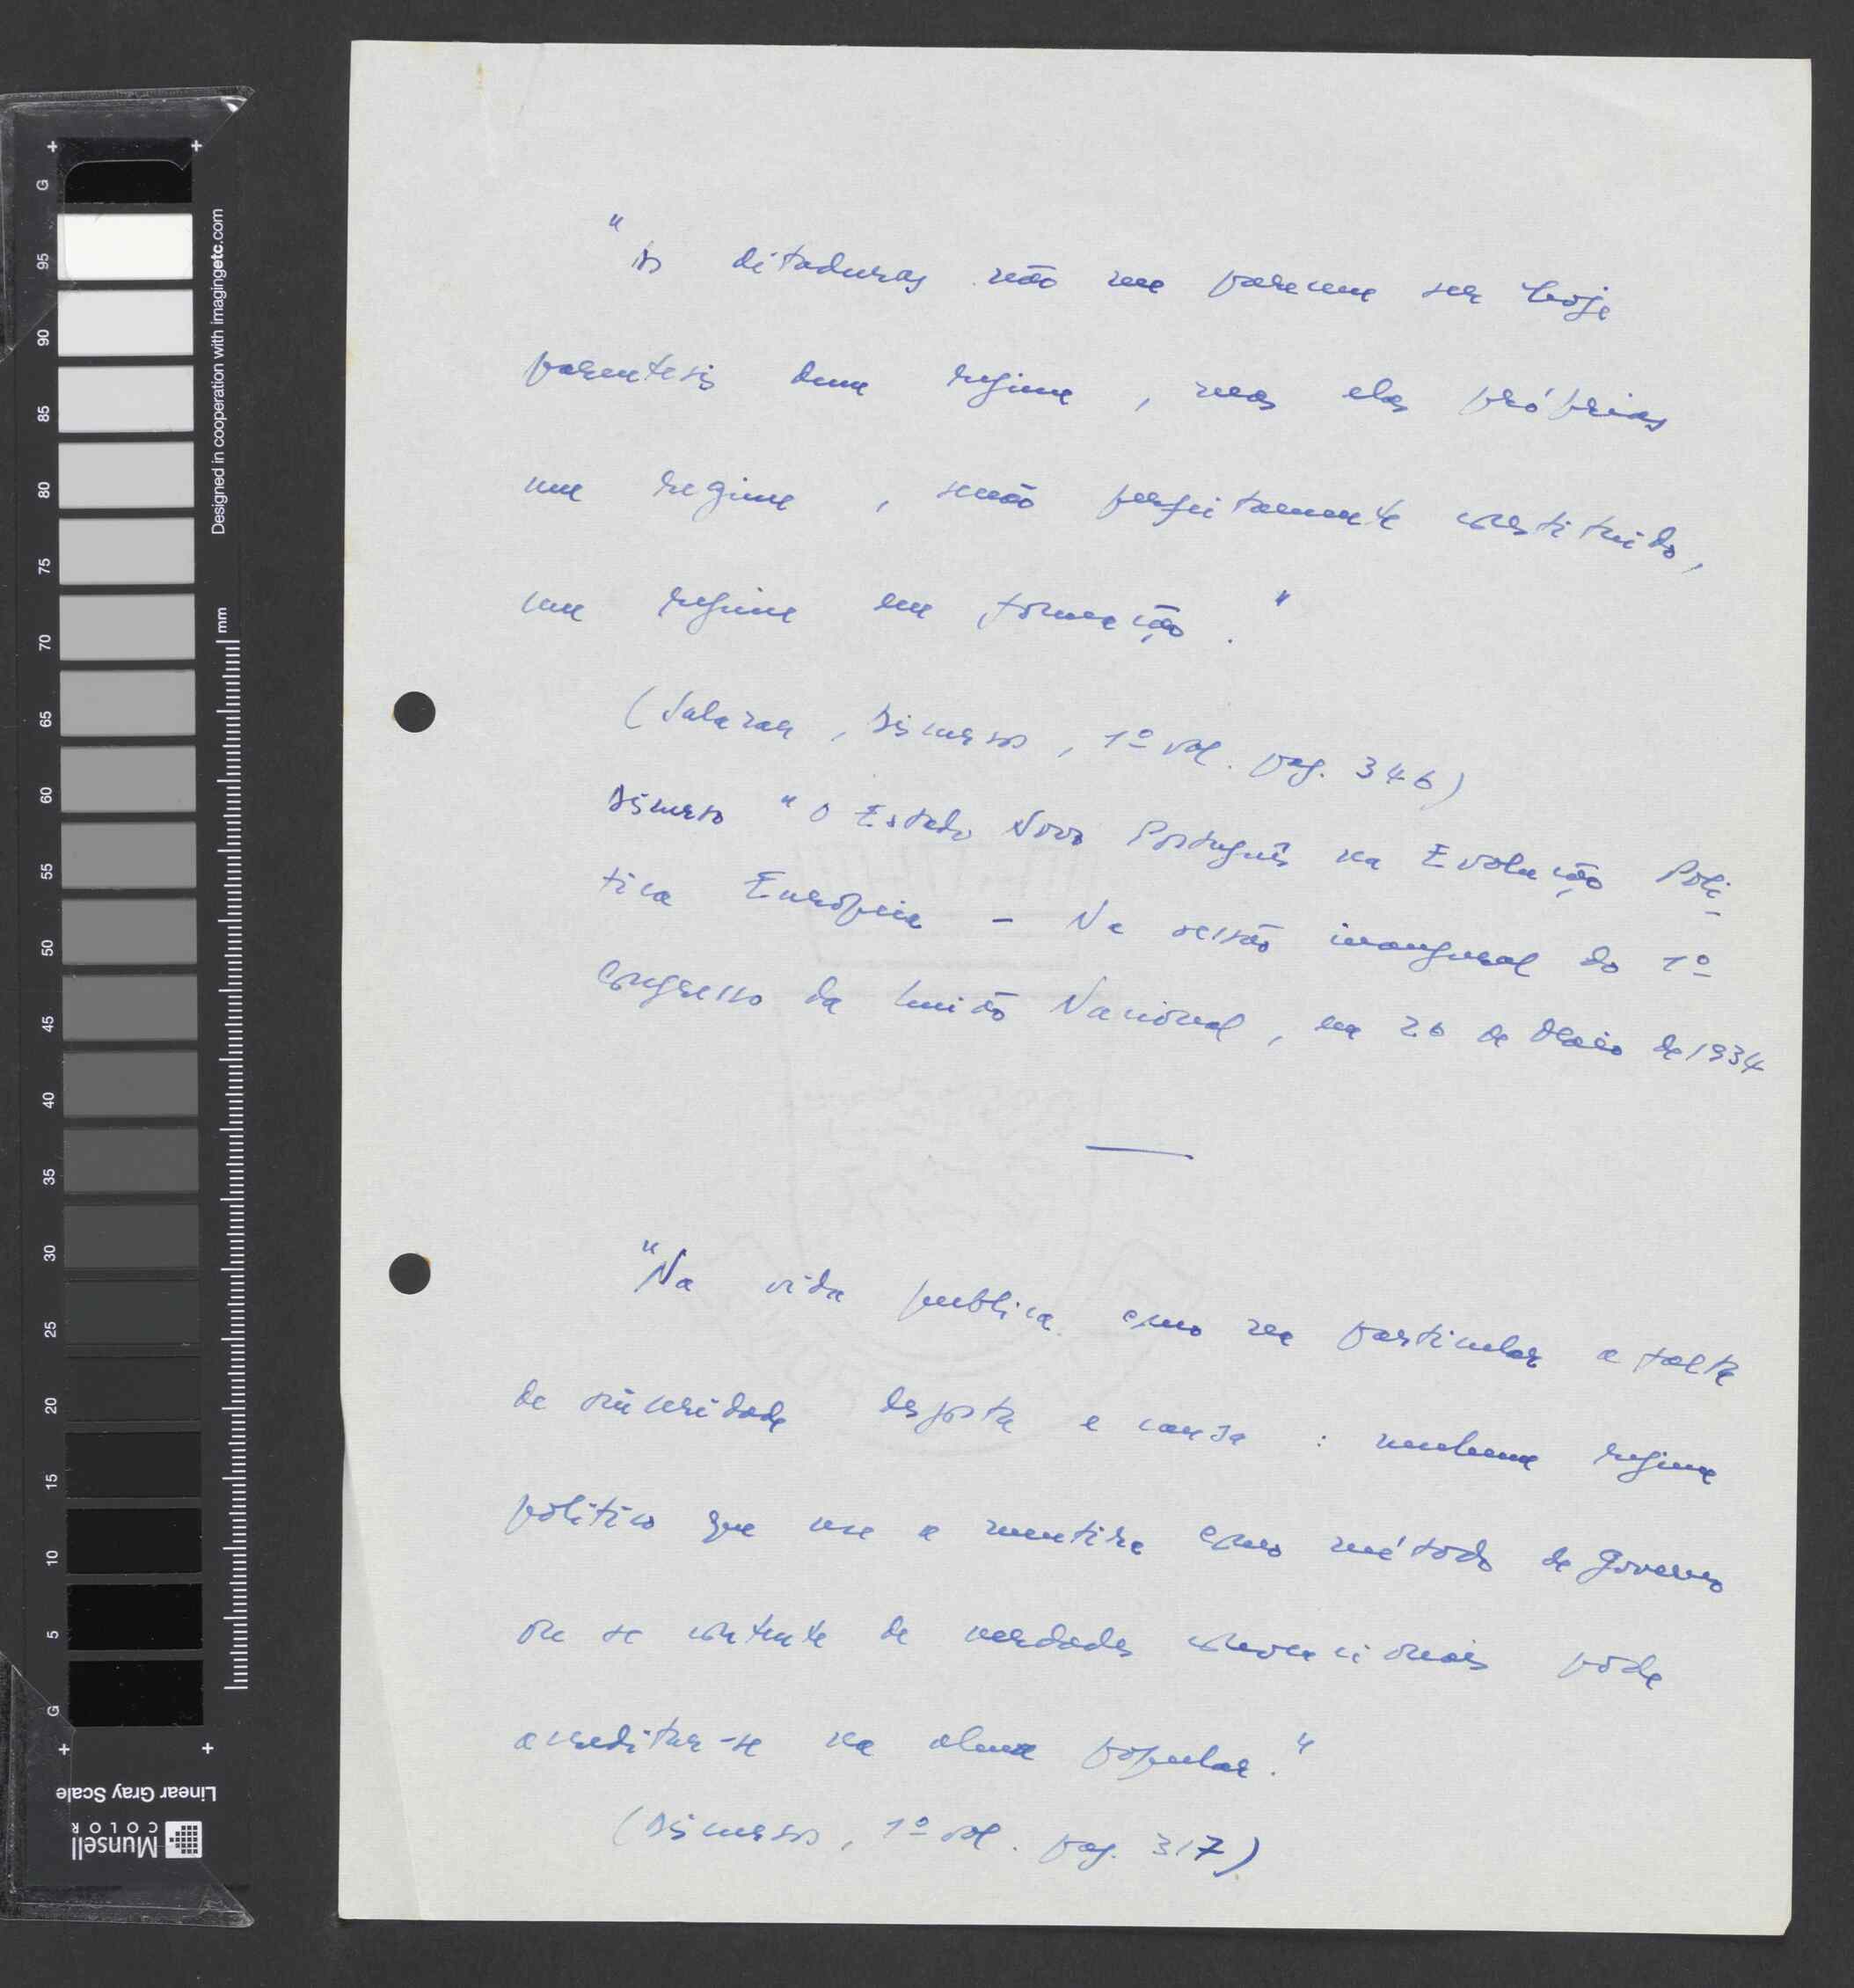 "As ditaduras não me parecem ser hoje
parentesis dum regime, mas elas próprias
um regime, senão perfeitamente constituido,
um regime em formação."
(Salazar, Discursos, 1º vol. pag. 346)
Discurso "O Estado Novo Português na Evolução Polí-
tica Europeia - Na sessão inaugural do 1º
Congresso da União Nacional, em 26 de Maio de 1934
"Na vida publica como na particular a falta
de sinceridade desgosta e cansa: nenhum regime
politico que use a mentira como método de Governo
ou se contente de verdades convencionais póde
acreditar-se na alma popular."
(Discursos, 1º vol. pag. 317)
Designed in cooperation with imagingetc.com
mm
+ G 95 90 85 80 75 70 65 60 55 50 45 40 35 30 25 20 15 10 5 G +
Linear Gray Scale
Munsell
COLOR